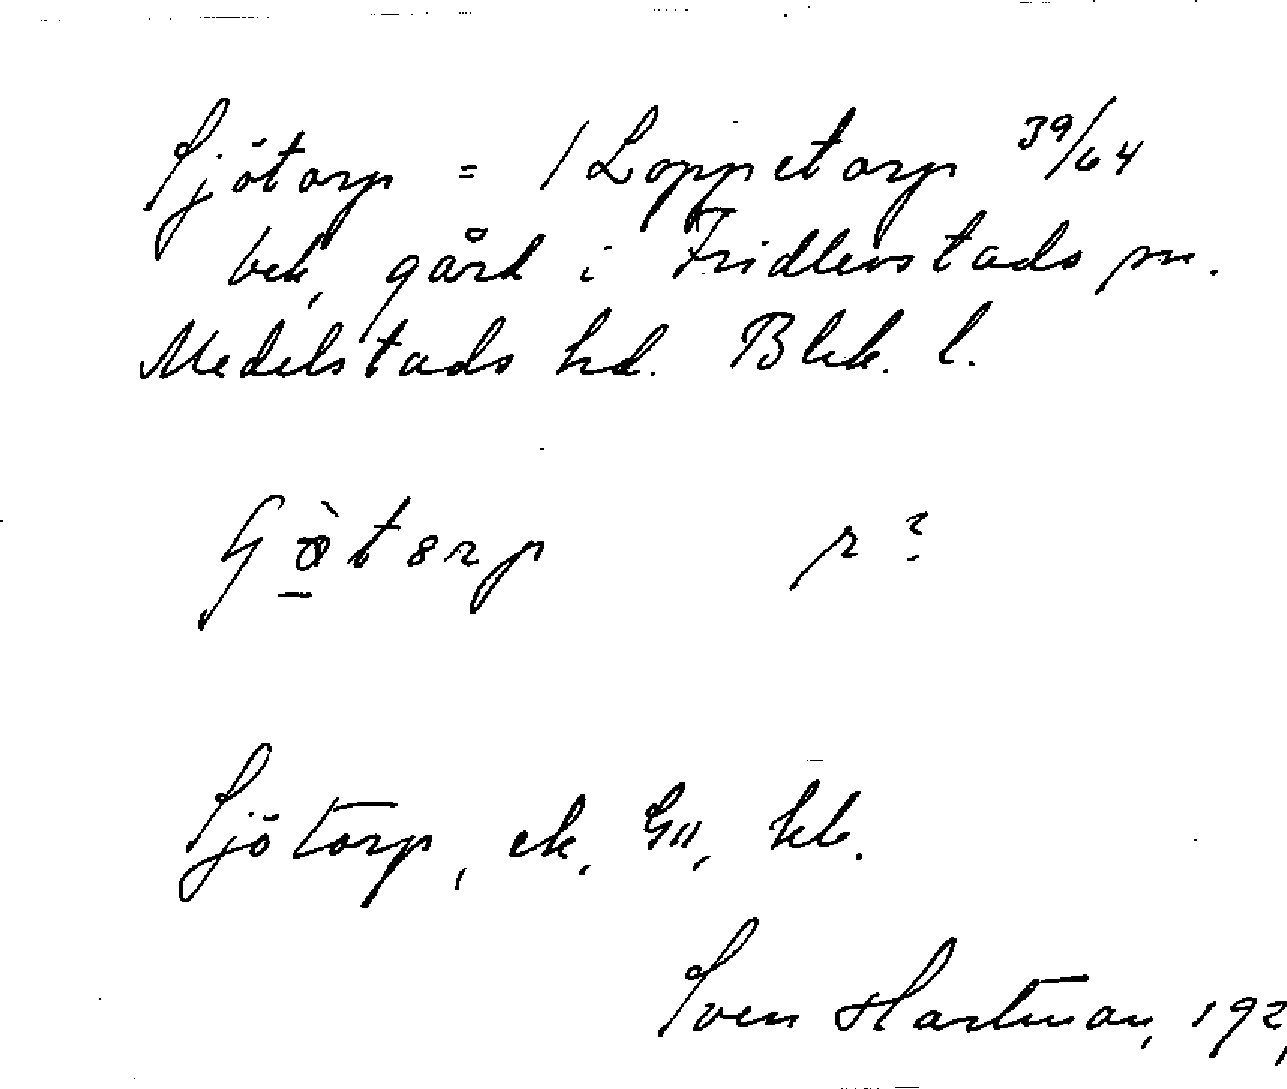 Sjötorp = 1 Loppetorp 39/64
beb. gård i Fridlevstads sn.
Medelstads hd. Blek. l.
Sjötorp, ek.
Sven Hartman, 192